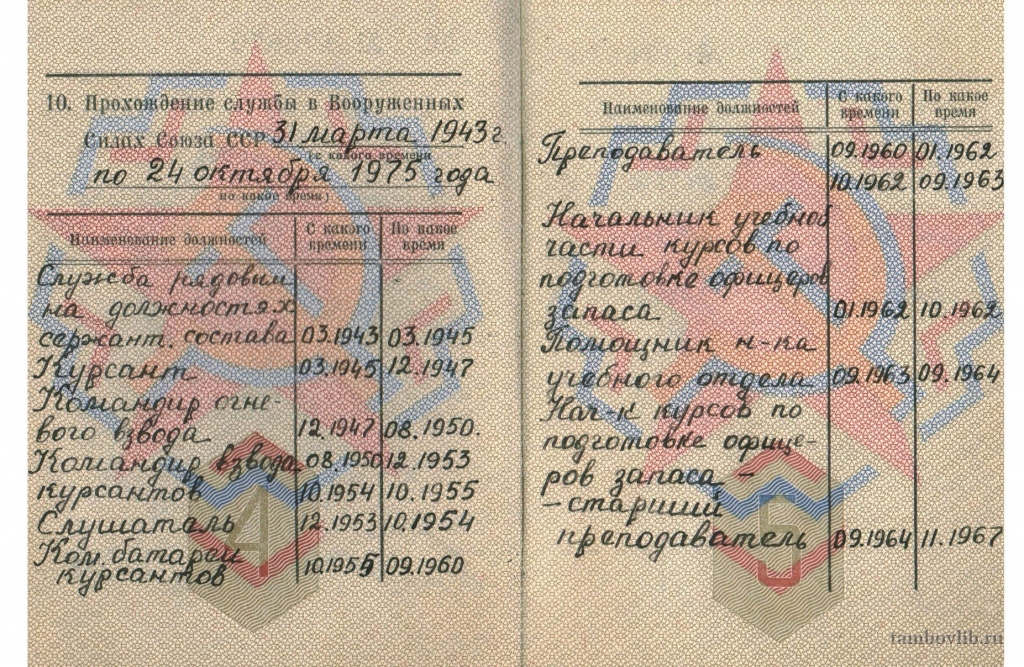 10. Прохождение службы в Вооруженных
Силах Союза ССР 31 марта 1943 г.
(с какого времени
по 24 октября 1975 года
по какое время)
Наименование должностей С какого времени По какое время
Служба рядовым
на должностях
сержант. состава 03.1943 03.1945
Курсант 03.1945 12.1947
Командир огне-
вого взвода 12.1947 08.1950.
Командир взвода 08.1950 12.1953
курсантов 10.1954 10.1955
Слушаталь 12.1953 10.1954
Ком. батареи
курсантов 10.1955 09.1960
4
Наименование должностей С какого времени По какое время
Преподаватель 09.1960 01.1962
10.1962 09.1963
Начальник учебной
части курсов по
подготовке офицеров
запаса 01.1962 10.1962
Помощник н-ка
учебного отдела 09.1963 09.1964
Нач-к курсов по
подготовке офице-
ров запаса -
- старший
преподаватель 09.1964 11.1967
5
tambovlib.ru